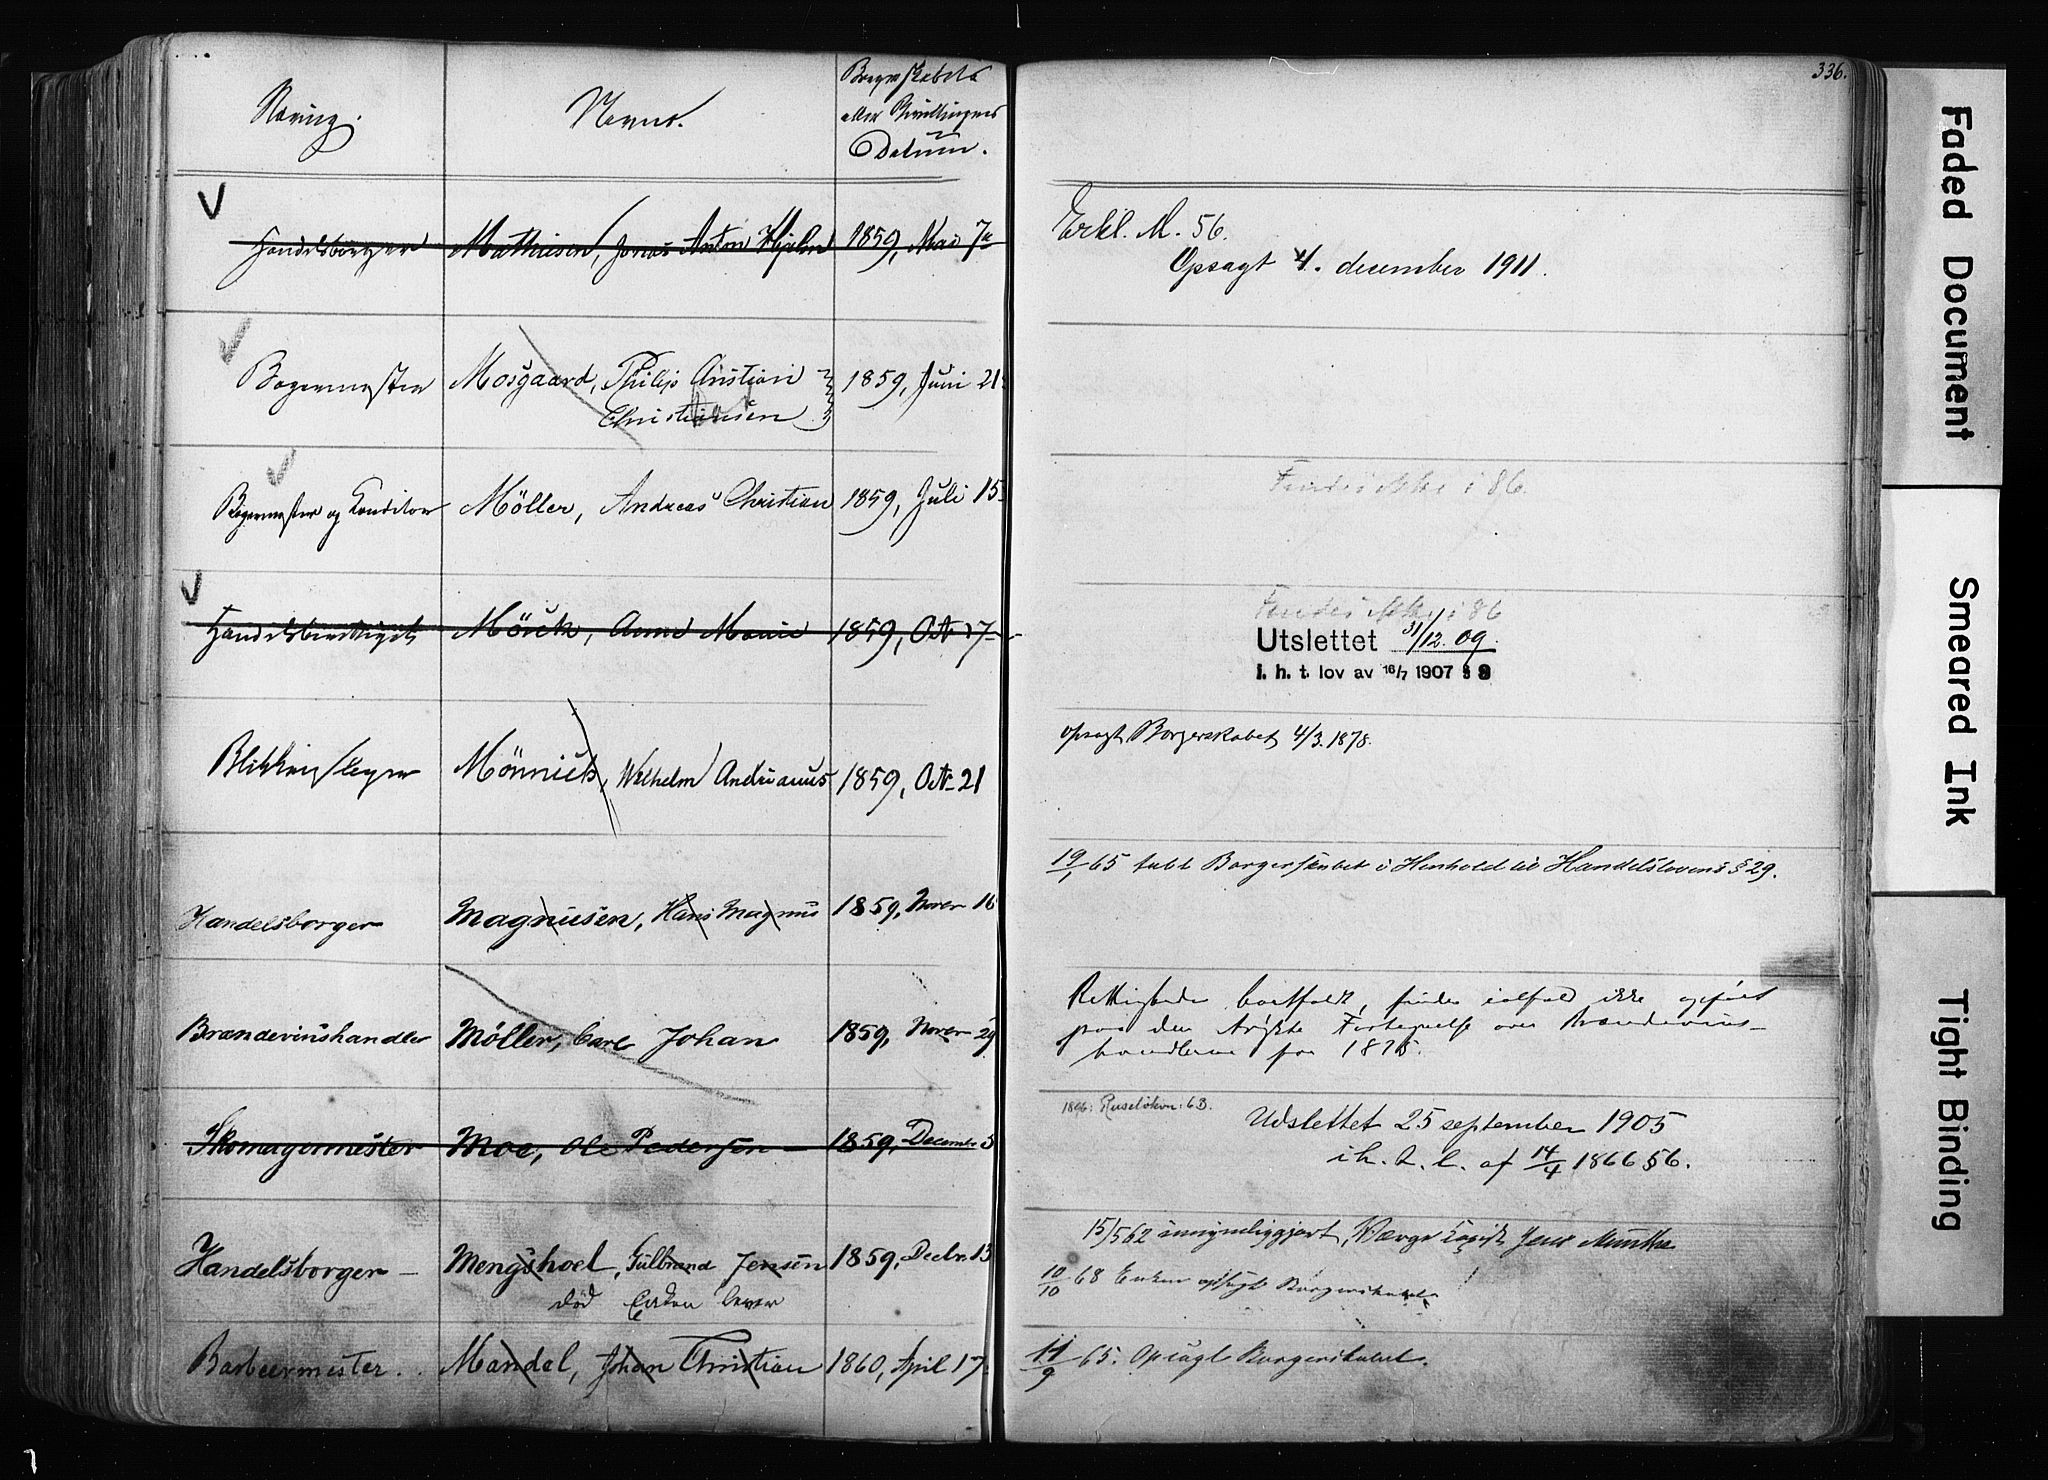 336.
Næring. Navne. Borgerskabets
eller Bevillingens
Datum.
Handelsborger Mathiesen, Jonas Anton Hjelm 1859, Mai 7de
Erkl. M. 56.
Opsagt 4. december 1911.
Bagermester Mosgaard, Philip Christian 1859, Juni 21
Christiansen
Død
Bagermester og Konditor Möller, Andreas Christian 1859, Juli 15
Findes ikke i 86.
Handelsberettiget Mörch, Anne Marie 1859, Oct 17
Findes ikke i 86
Utslettet 31/12.09.
i. h. t. lov av 16/7 1907 § 3
Blikkenslager Mönnich, Wilhelm Andreanus 1859, Oct 21
opsagt Borgerskabet 4/3.1878.
Handelsborger Magnusen, Hans Magnus 1859, Nover 16
19/1 65 tabt Borgerskabet i Henhold til Handelslovens § 29.
Brændevinshandler Møller, Carl Johan 1859, Novbr 29
Rettigheden bortfaldt, findes ialfald ikke opført
paa den trykte Fortegnelse over Brændevins-
handlerne for 1875.
Skomagermester Moe, Ole Pedersen 1859, Decembr 5
1886: Ruseløkvn: 6B.
Udslettet 25 september 1905
i h. t. l. af 14/4 1866 § 6.
Handelsborger Mengshoel, Gulbrand Jensen 1859, Decbr. 13
død Enken lever
15/5 62 umyndiggjort, Værge Jens Munthe
10/10 68 Enken opsagt Borgerskabet
Barbeermester Mandal, Johan Christian 1860, April 17
11/9 65. Opsagt Borgerskabet.
Faded Document
Smeared Ink
Tight Binding